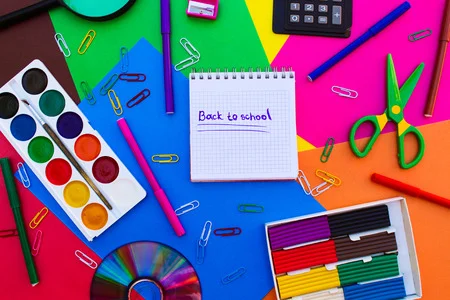 Back to school